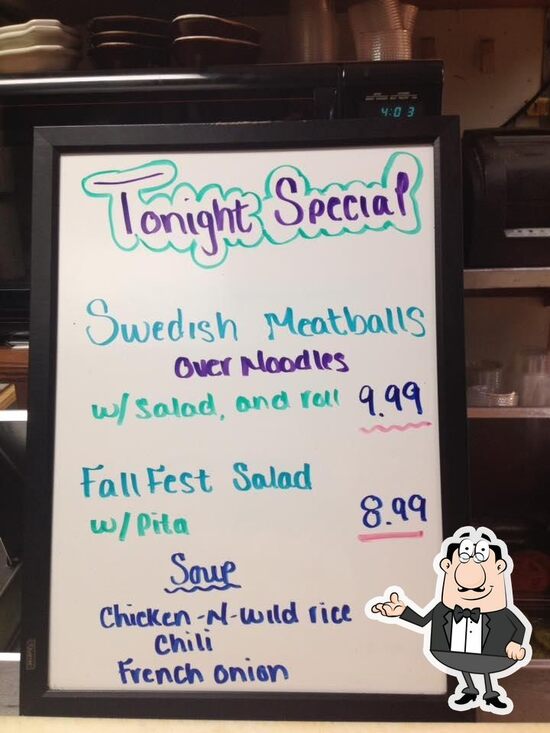 4:03
Tonight Special
Swedish Meatballs
over Noodles
w/ Salad, and roll 9.99
Fall Fest Salad
w/ Pita 8.99
Soup
Chicken-N-Wild rice
Chili
French onion